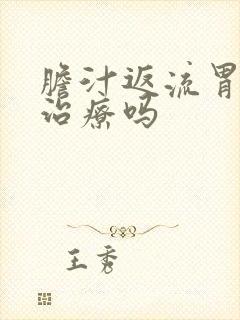 膽汁返流胃
治療嗎
王秀